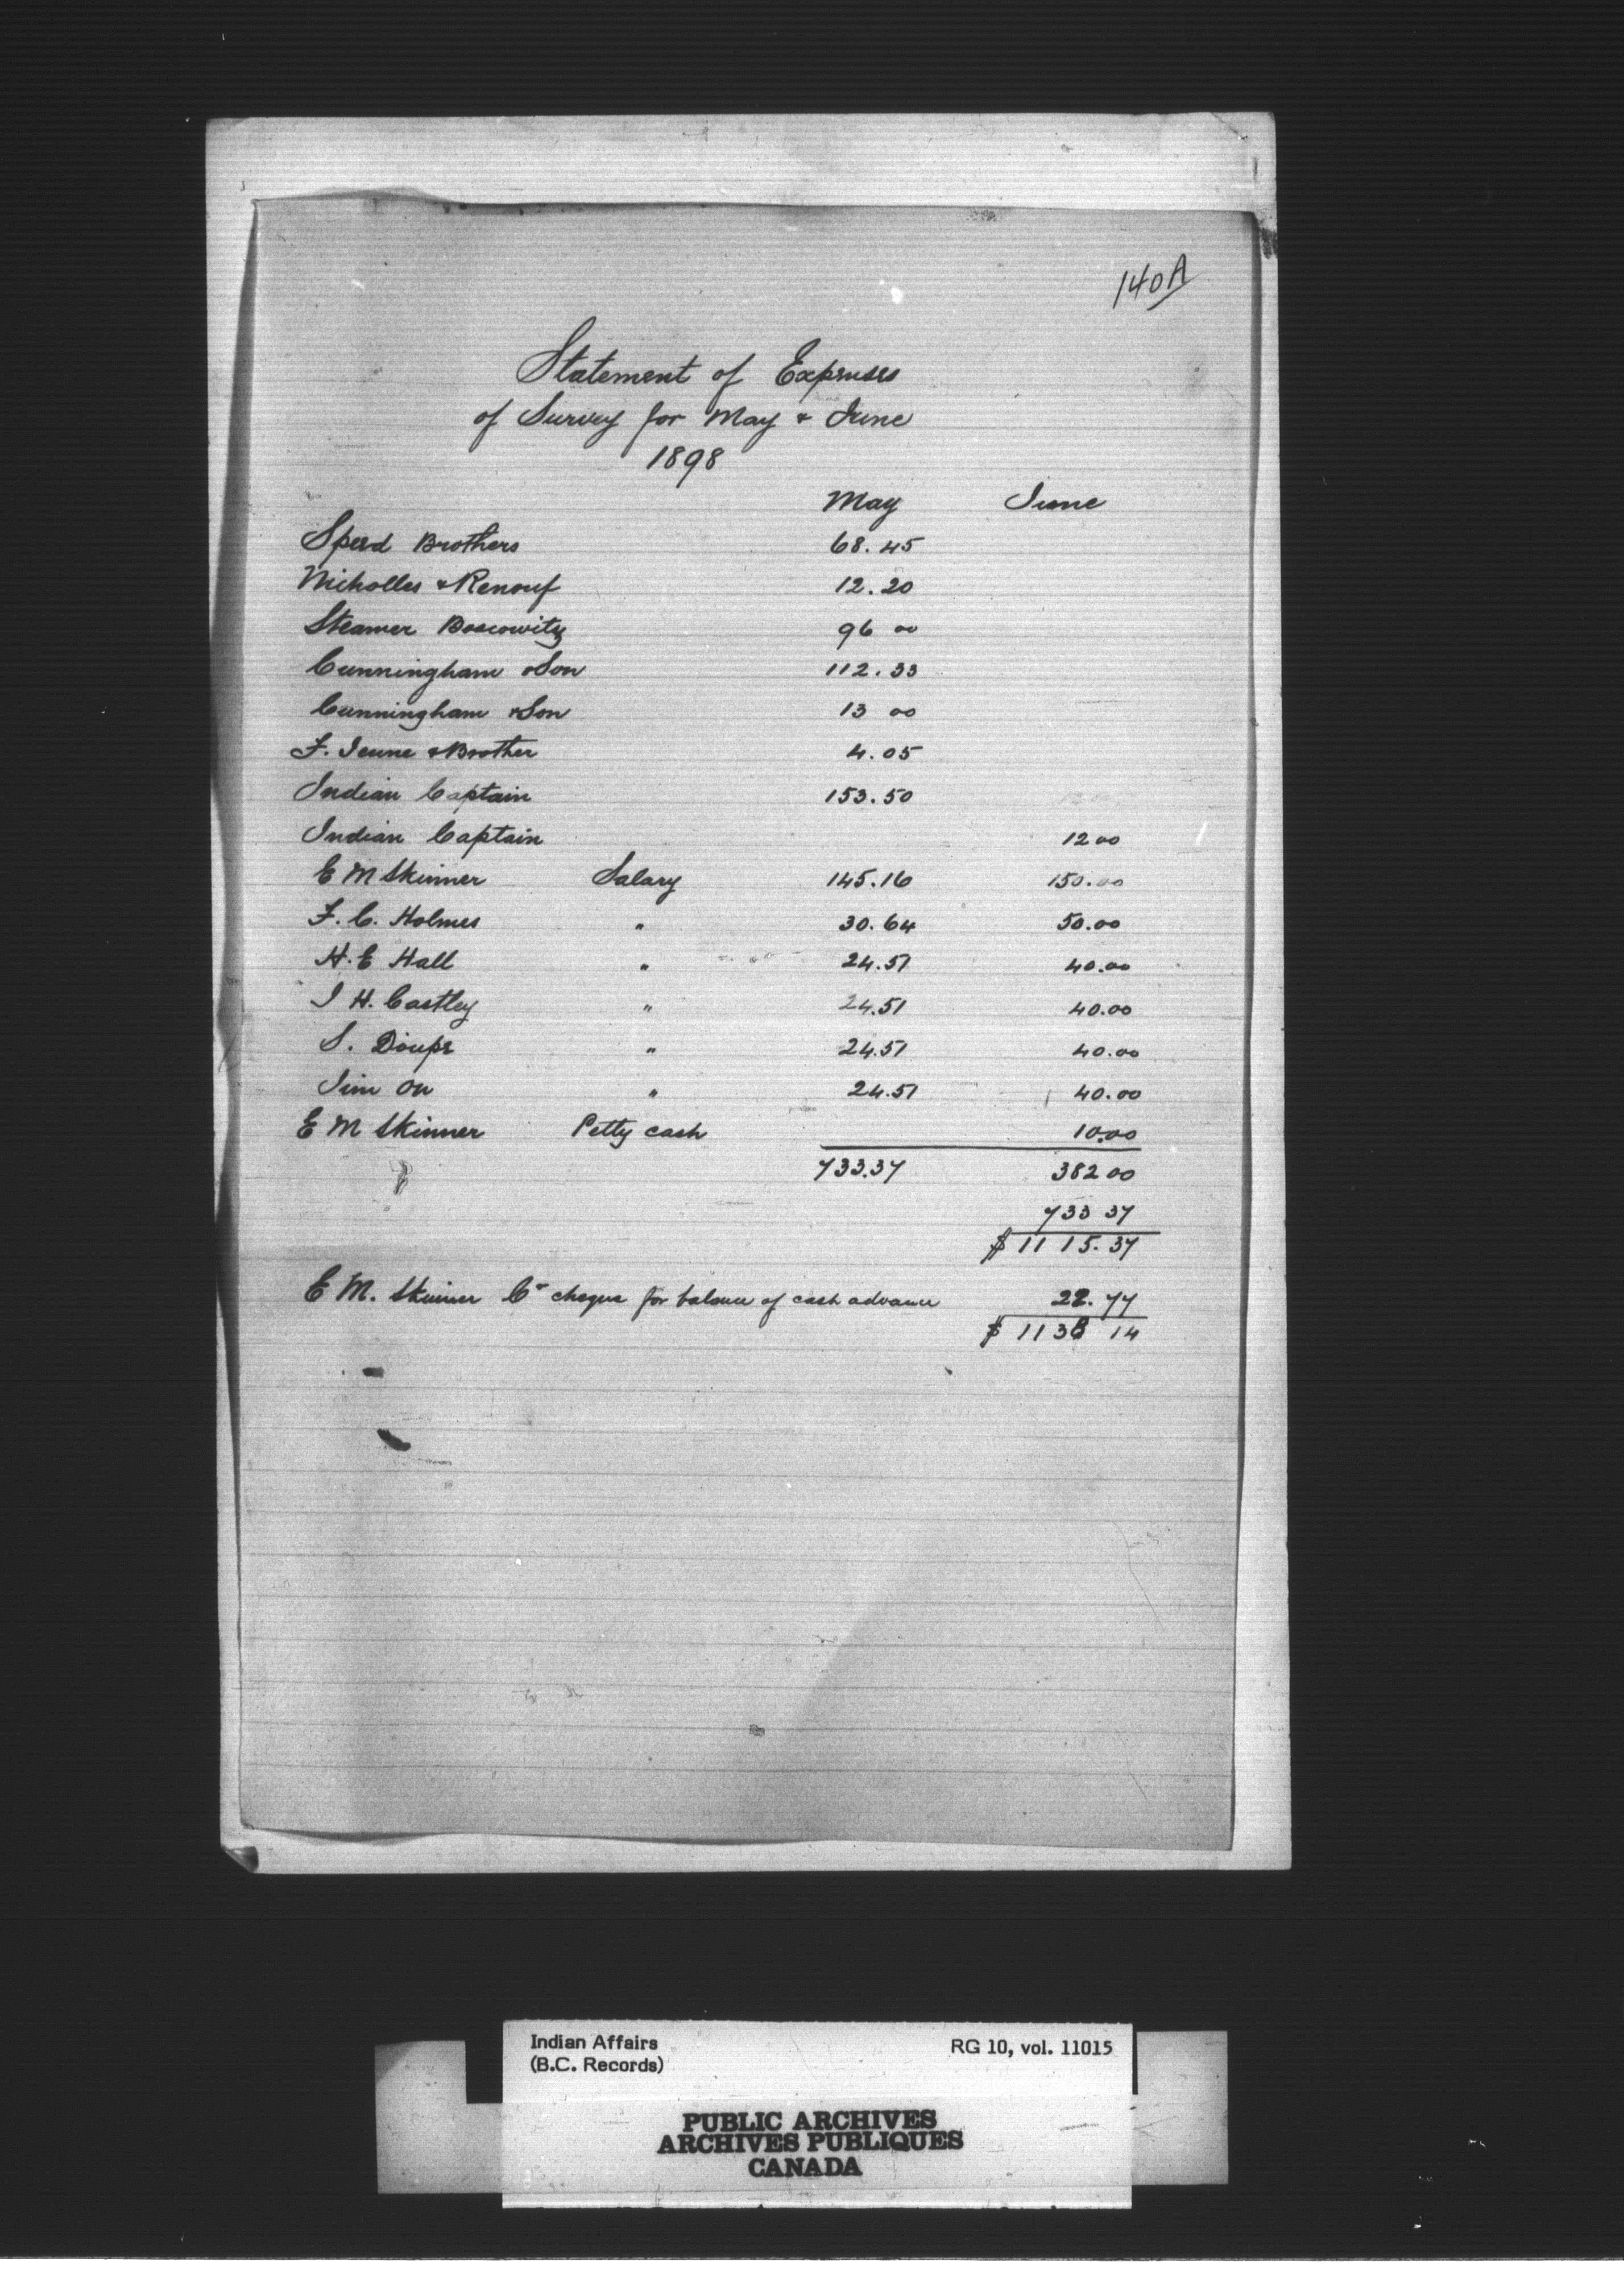 140A
Statement of Expenses
of Survey for May & June
1898
May June
Speed Brothers 68.45
Nicholles & Renouf 12.20
Steamer Boscowitz 96 00
Cunningham & Son 112.33
Cunningham & Son 13 00
F. Jeune & Brother 4.05
Indian Captain 153.50
Indian Captain 12 00
E M Skinner Salary 145.16 150.00
F. C. Holmes " 30.64 50.00
H. E Hall " 24.51 40.00
J H. Castley " 24.51 40.00
S. Doupe " 24.51 40.00
Jim On " 24.51 40.00
E M Skinner Petty cash 10.00
733.37 382 00
733 37
$ 1115.37
E M. Skinner Cr cheque for balance of cash advance 22.77
$ 1138 14
Indian Affairs RG 10, vol. 11015
(B.C. Records)
PUBLIC ARCHIVES
ARCHIVES PUBLIQUES
CANADA